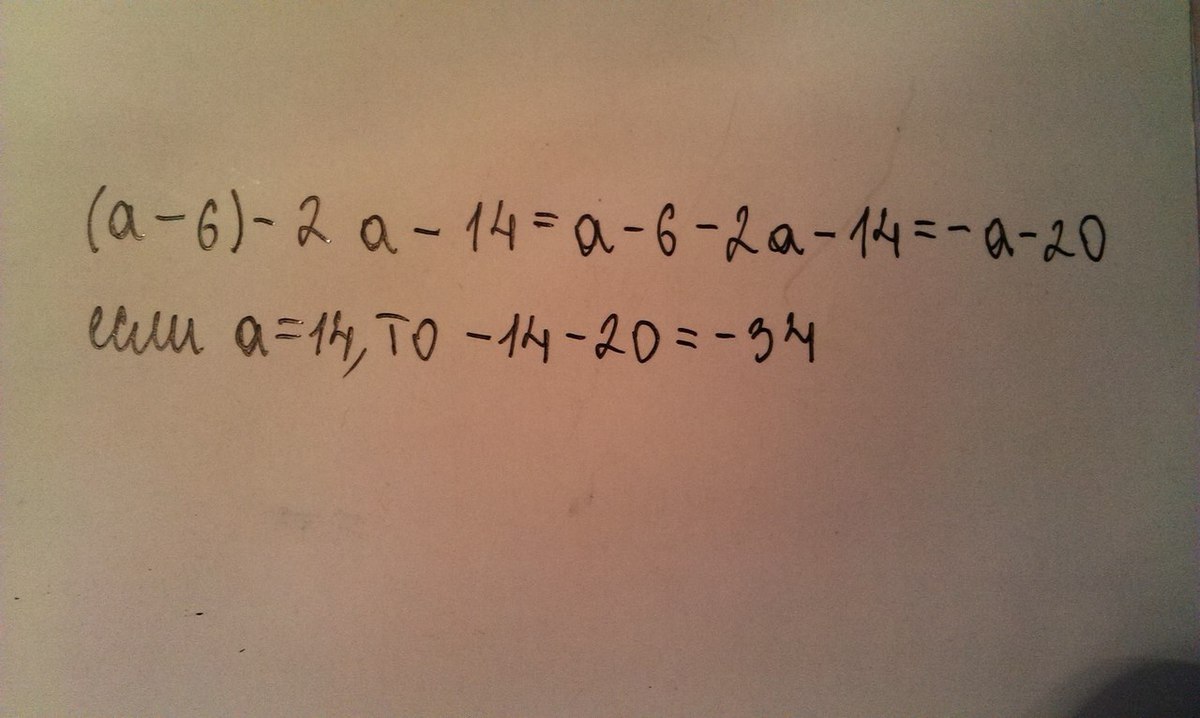 (a-6)-2 a-14=a-6-2a-14=-a-20
если a=14, то -14-20=-34